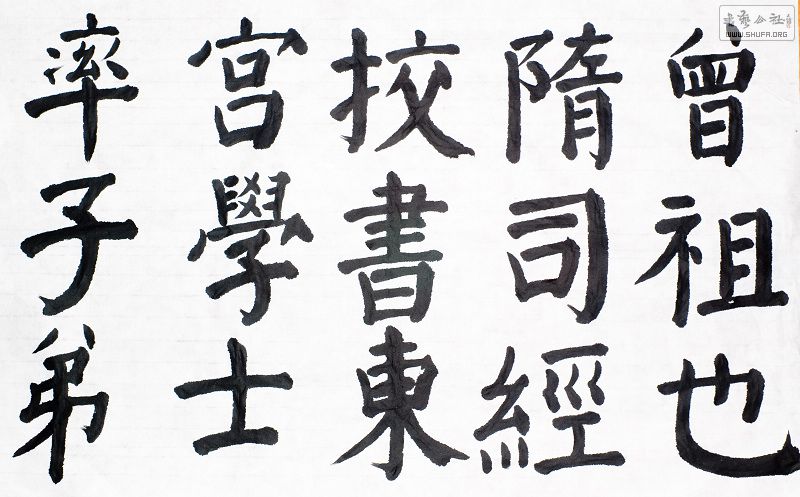 曾祖也
隋司經
挍書東
宮學士
率子弟
書藝公社
WWW.SHUFA.ORG